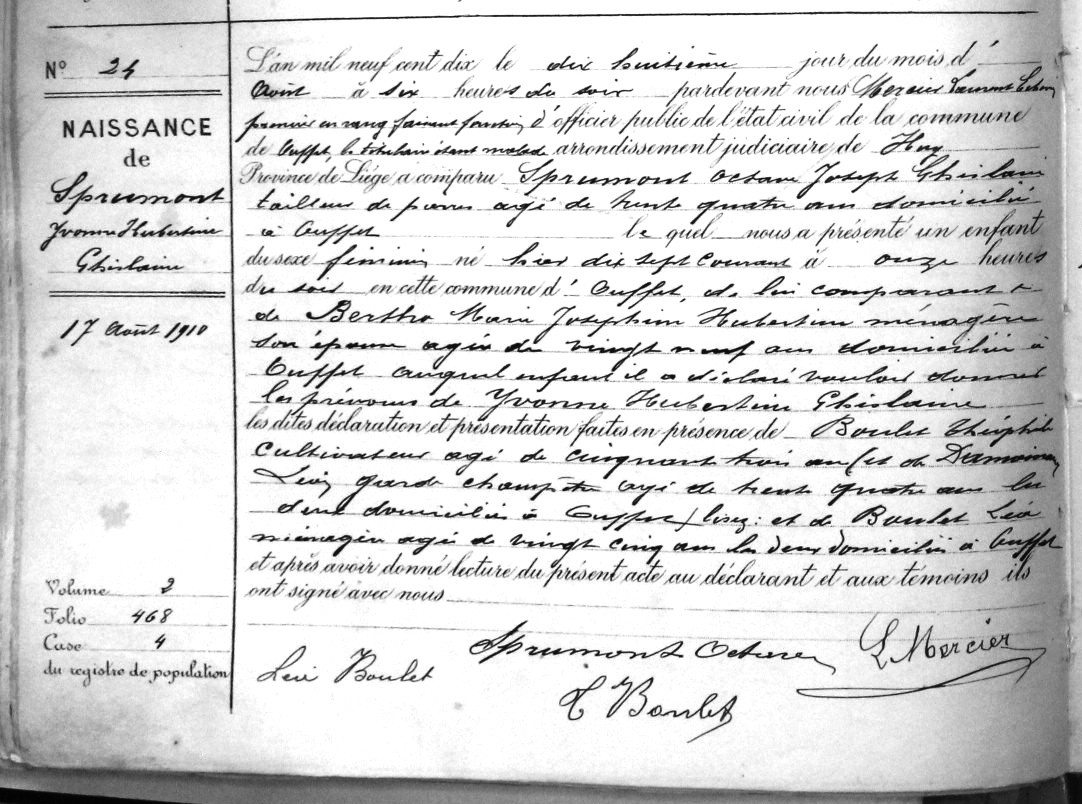 N° 24
NAISSANCE
de
Sprumont
Yvonne Hubertine
Ghislaine
17 Août 1910
Volume 2
Folio 468
Case 4
du registre de population
L'an mil neuf cent dix le dix huitième jour du mois d'
Aout à six heures du soir pardevant nous Mercier Laurent Echevin
premier en rang faisant fonction d'officier public de l'état civil de la commune
de Ouffet, le titulaire étant malade arrondissement judiciaire de Huy
Province de Liége a comparu Sprumont Octave Joseph Ghislain
tailleur de pierres agé de trente quatre ans domicilié
à Ouffet lequel nous a présenté un enfant
du sexe féminin né hier dix sept courant à onze heures
du soir en cette commune d'Ouffet, de lui comparant et
de Bertho Marie Josephine Hubertine ménagère
son épouse agée de vingt neuf ans domiciliée à
Ouffet auquel enfant il a déclaré vouloir donner
les prénoms de Yvonne Hubertine Ghislaine
les dites déclaration et présentation faites en présence de Boulet Théophile
cultivateur agé de cinquante trois ans (et de
Léon garde champêtre agé de trente quatre ans les
deux domiciliés à Ouffet) lisez: et de Boulet Léa
ménagère agée de vingt cinq ans les deux domiciliés à Ouffet
et après avoir donné lecture du présent acte au déclarant et aux témoins ils
ont signé avec nous
Sprumont Octave L Mercier
Léa Boulet
T Boulet